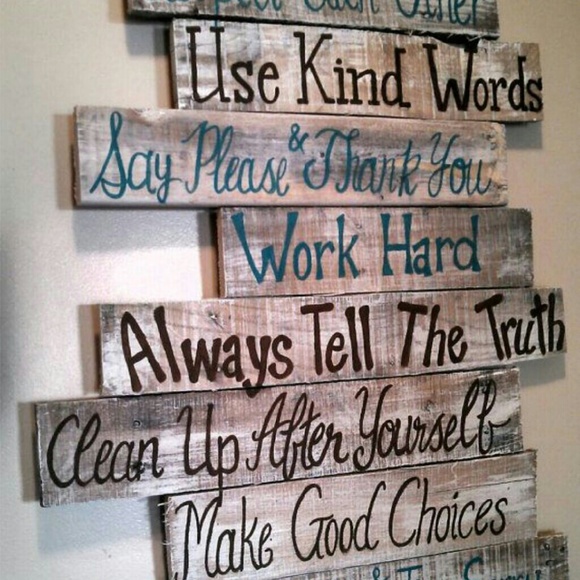 Each Other
Use Kind Words
Say Please & Thank You
Work Hard
Always Tell The Truth
Clean Up After Yourself
Make Good Choices
&